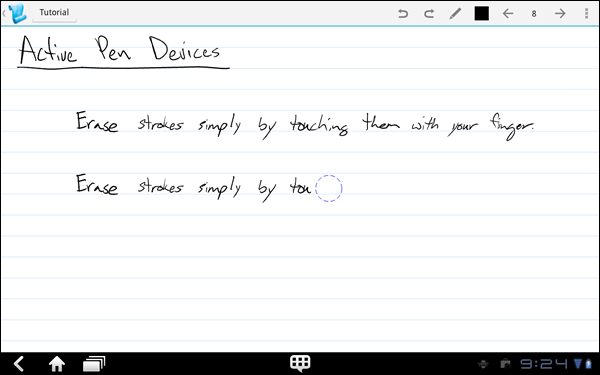 Tutorial
8
Active Pen Devices
Erase strokes simply by touching them with your finger.
Erase strokes simply by tou
9:24